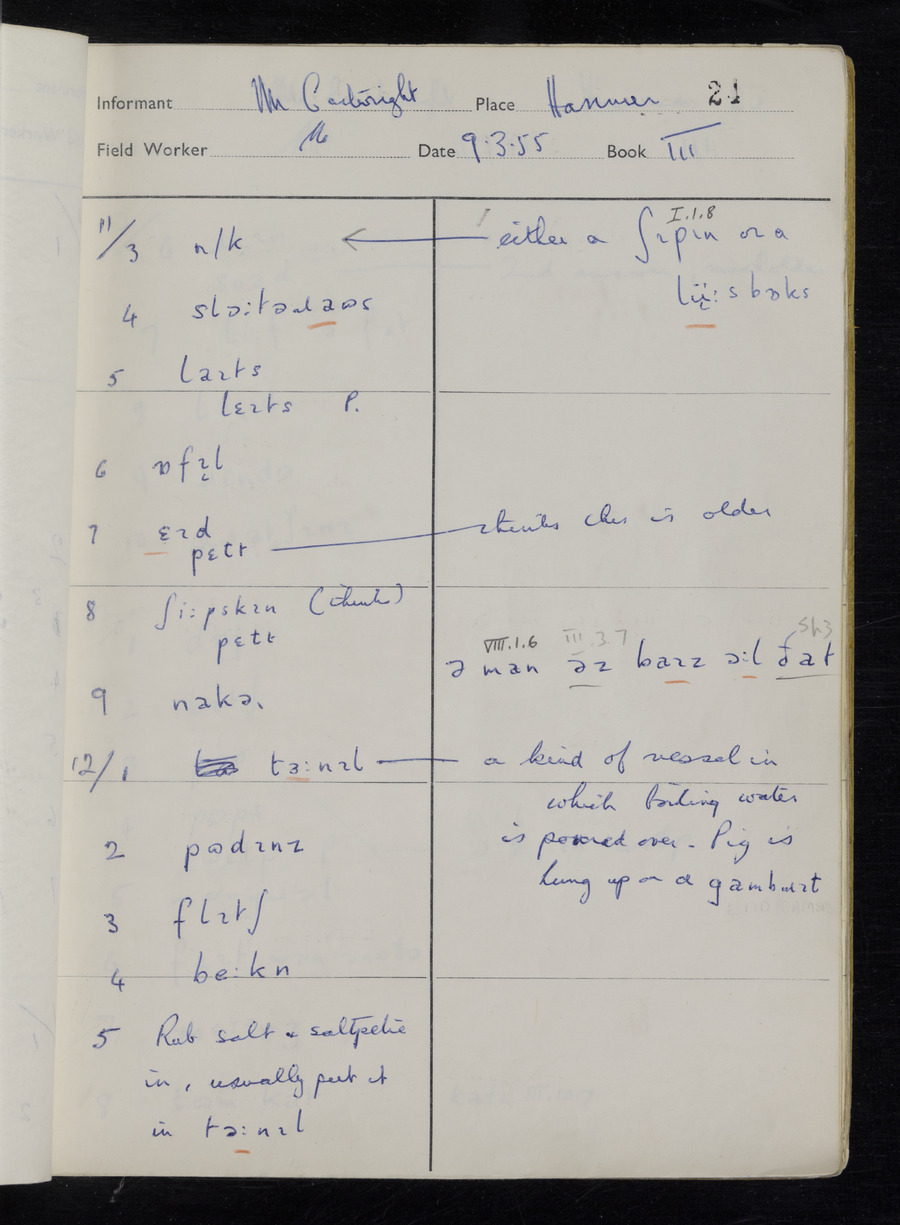 Informant Mr Cartwright Place Hanmer 21
Field Worker Date 9.3.55 Book III
11/3 n/k ← either a ʃɪpɪn or a I.1.8
lïː s bɒks
4 slɔːtəɹaʊs
5 laɪts
lɛɪts P.
6 ɒfɪl
7 ɛɪd
pɛtɪ — thinks this is older
8 ʃiːpskɪn (thinks)
pɛtɪ
VIII.1.6 III.3.7
ə man əz baɪz ɔːl ðat
9 nakə
12/1 tɜːnɪl — a kind of vessel in
which boiling water
is poured over. Pig is
hung up on a gambɹɪt
2 pʊdɪnz
3 flɪtʃ
4 beːkn
5 Rub salt & saltpetre
in, usually put it
in təːnɪl